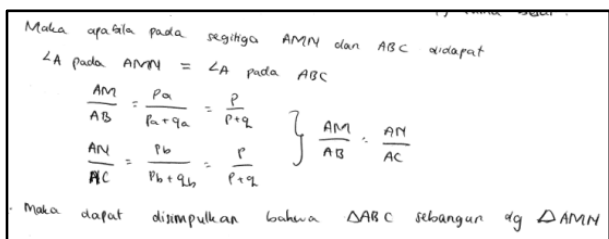 Maka apabila pada segitiga AMN dan ABC didapat
∠A pada AMN = ∠A pada ABC
AM/AB = Pa/(Pa+qa) = P/(P+q)
AN/AC = Pb/(Pb+qb) = P/(P+q)
} AM/AB = AN/AC
Maka dapat disimpulkan bahwa △ABC sebangun dg △AMN